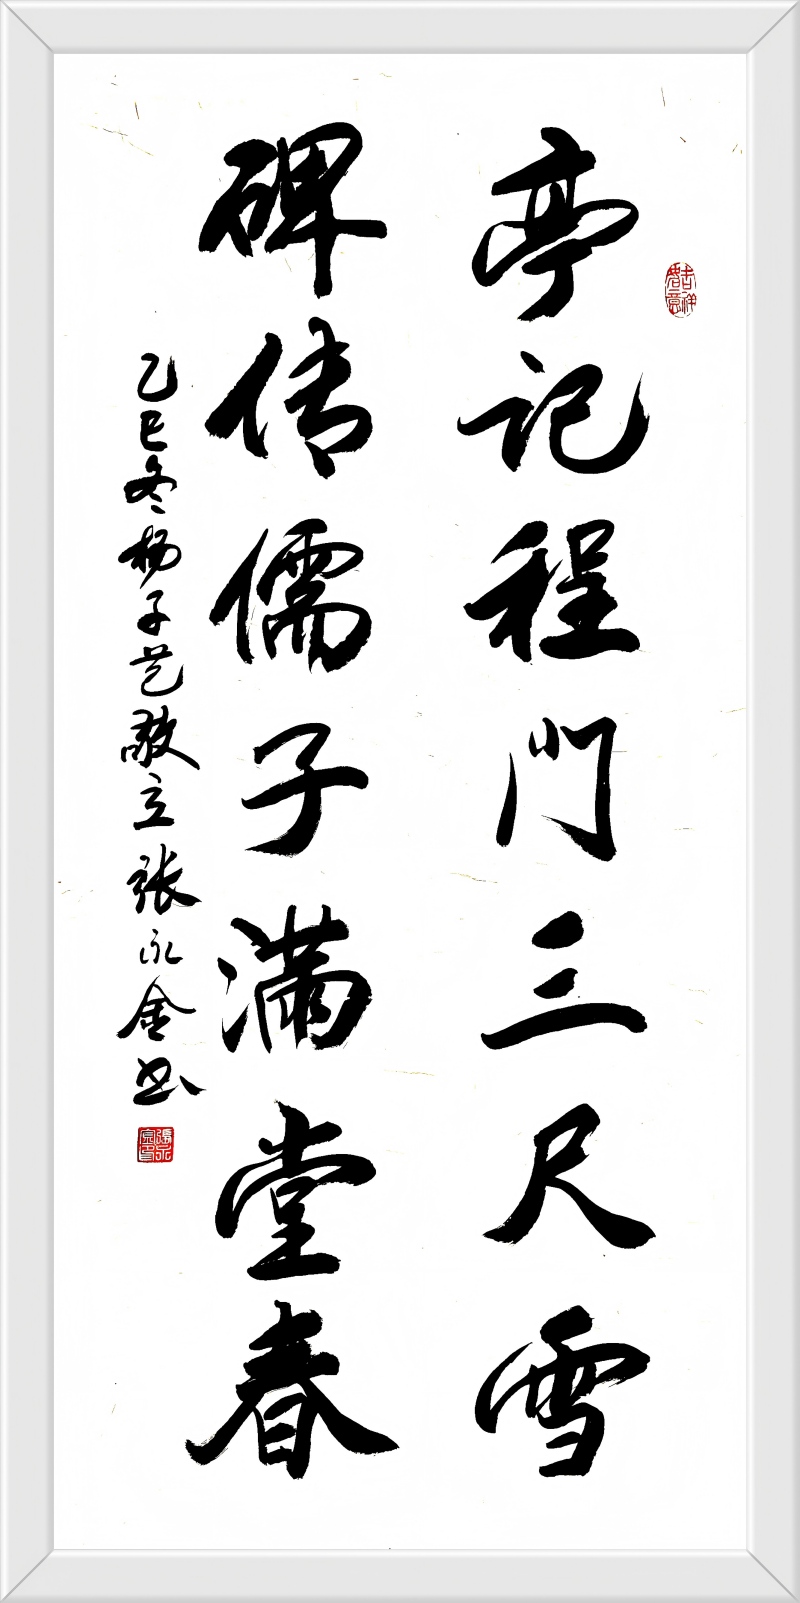 亭记程门三尺雪
碑传儒子满堂春
乙巳冬杨子艺敬立张永金书
吉祥如意